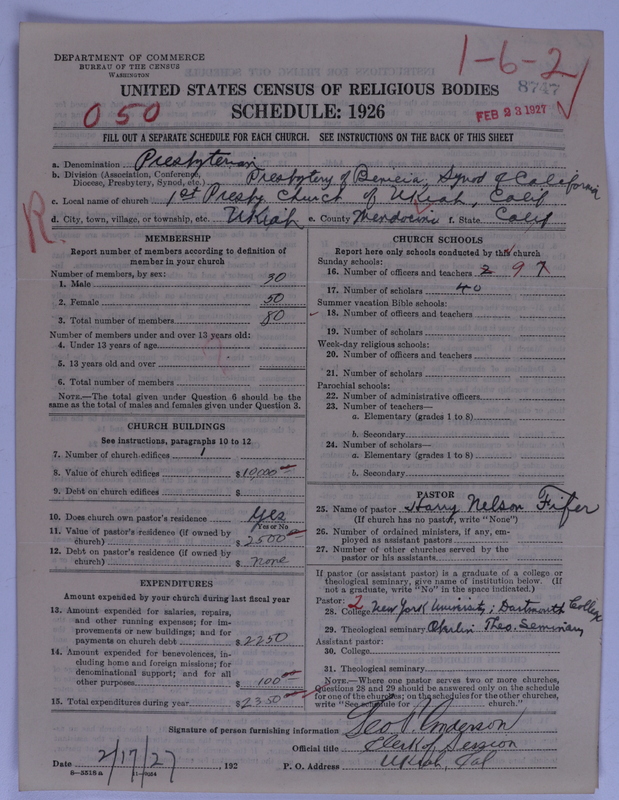 DEPARTMENT OF COMMERCE
BUREAU OF THE CENSUS
WASHINGTON
1-6-2
8747
UNITED STATES CENSUS OF RELIGIOUS BODIES
SCHEDULE: 1926
050
FEB 23 1927
FILL OUT A SEPARATE SCHEDULE FOR EACH CHURCH. SEE INSTRUCTIONS ON THE BACK OF THIS SHEET
a. Denomination Presbyterian
b. Division (Association, Conference, Diocese, Presbytery, Synod, etc.) Presbytery of Benicia, Synod of California
c. Local name of church 1st Presby Church of Ukiah, Calif
d. City, town, village, or township, etc. Ukiah e. County Mendocino f. State Calif
R.
MEMBERSHIP
Report number of members according to definition of
member in your church
Number of members, by sex:
1. Male 30
2. Female 50
3. Total number of members 80
Number of members under and over 13 years old:
4. Under 13 years of age
5. 13 years old and over
6. Total number of members
NOTE.—The total given under Question 6 should be
same as the total of males and females given under Question 3.
CHURCH BUILDINGS
See instructions, paragraphs 10 to 12
7. Number of church edifices 1
8. Value of church edifices $10,000
9. Debt on church edifices $
10. Does church own pastor's residence Yes
Yes or No
11. Value of pastor's residence (if owned by
church) $2500
12. Debt on pastor's residence (if owned by
church) $ none
EXPENDITURES
Amount expended by your church during last fiscal year
13. Amount expended for salaries, repairs,
and other running expenses; for im-
provements or new buildings; and for
payments on church debt $2250
14. Amount expended for benevolences, in-
cluding home and foreign missions; for
denominational support; and for all
other purposes $100
15. Total expenditures during year $2350
CHURCH SCHOOLS
Report here only schools conducted by this church
Sunday schools:
16. Number of officers and teachers 2 9 7
17. Number of scholars 40
Summer vacation Bible schools:
18. Number of officers and teachers
19. Number of scholars
Week-day religious schools:
20. Number of officers and teachers
21. Number of scholars
Parochial schools:
22. Number of administrative officers
23. Number of teachers—
a. Elementary (grades 1 to 8)
b. Secondary
24. Number of scholars—
a. Elementary (grades 1 to 8)
b. Secondary
PASTOR
25. Name of pastor Harry Nelson Fifer
(If church has no pastor, write "None")
26. Number of ordained ministers, if any, em-
ployed as assistant pastors
27. Number of other churches served by the
pastor or his assistants
If pastor (or assistant pastor) is a graduate of a college or
theological seminary, give name of institution below. (If
not a graduate, write "No" in the space indicated.)
Pastor: 2
28. College New York University; Dartmouth College
29. Theological seminary Oberlin Theo. Seminary
Assistant pastor:
30. College
31. Theological seminary
NOTE.—Where one pastor serves two or more churches,
Questions 28 and 29 should be answered only on the schedule
for one of the churches; on the schedules for the other churches,
write "See schedule for church."
Signature of person furnishing information Geo. P. Anderson
Official title Clerk of Session
Date 2/17/27, 192 P. O. Address Ukiah, Cal
8-3518a 11-9084